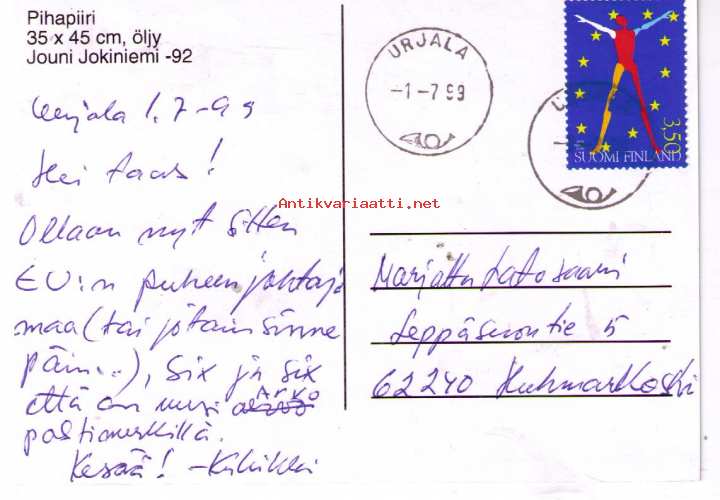 Pihapiiri
35 x 45 cm, öljy
Jouni Jokiniemi -92
Urjala 1.7-99
Hei taas!
Ollaan nyt sitten
EU:n puheenjohtaja
maa (tai jotain sinne
päin...), six ja six
että on uusi
ARVO
postimerkillä.
Kesää! -Kikikki
URJALA
-1-7 99
3,50
SUOMI FINLAND
Antikvariaatti.net
Marjatta Latosaari
Leppäsuontie 5
62240 Kuhmarkoski